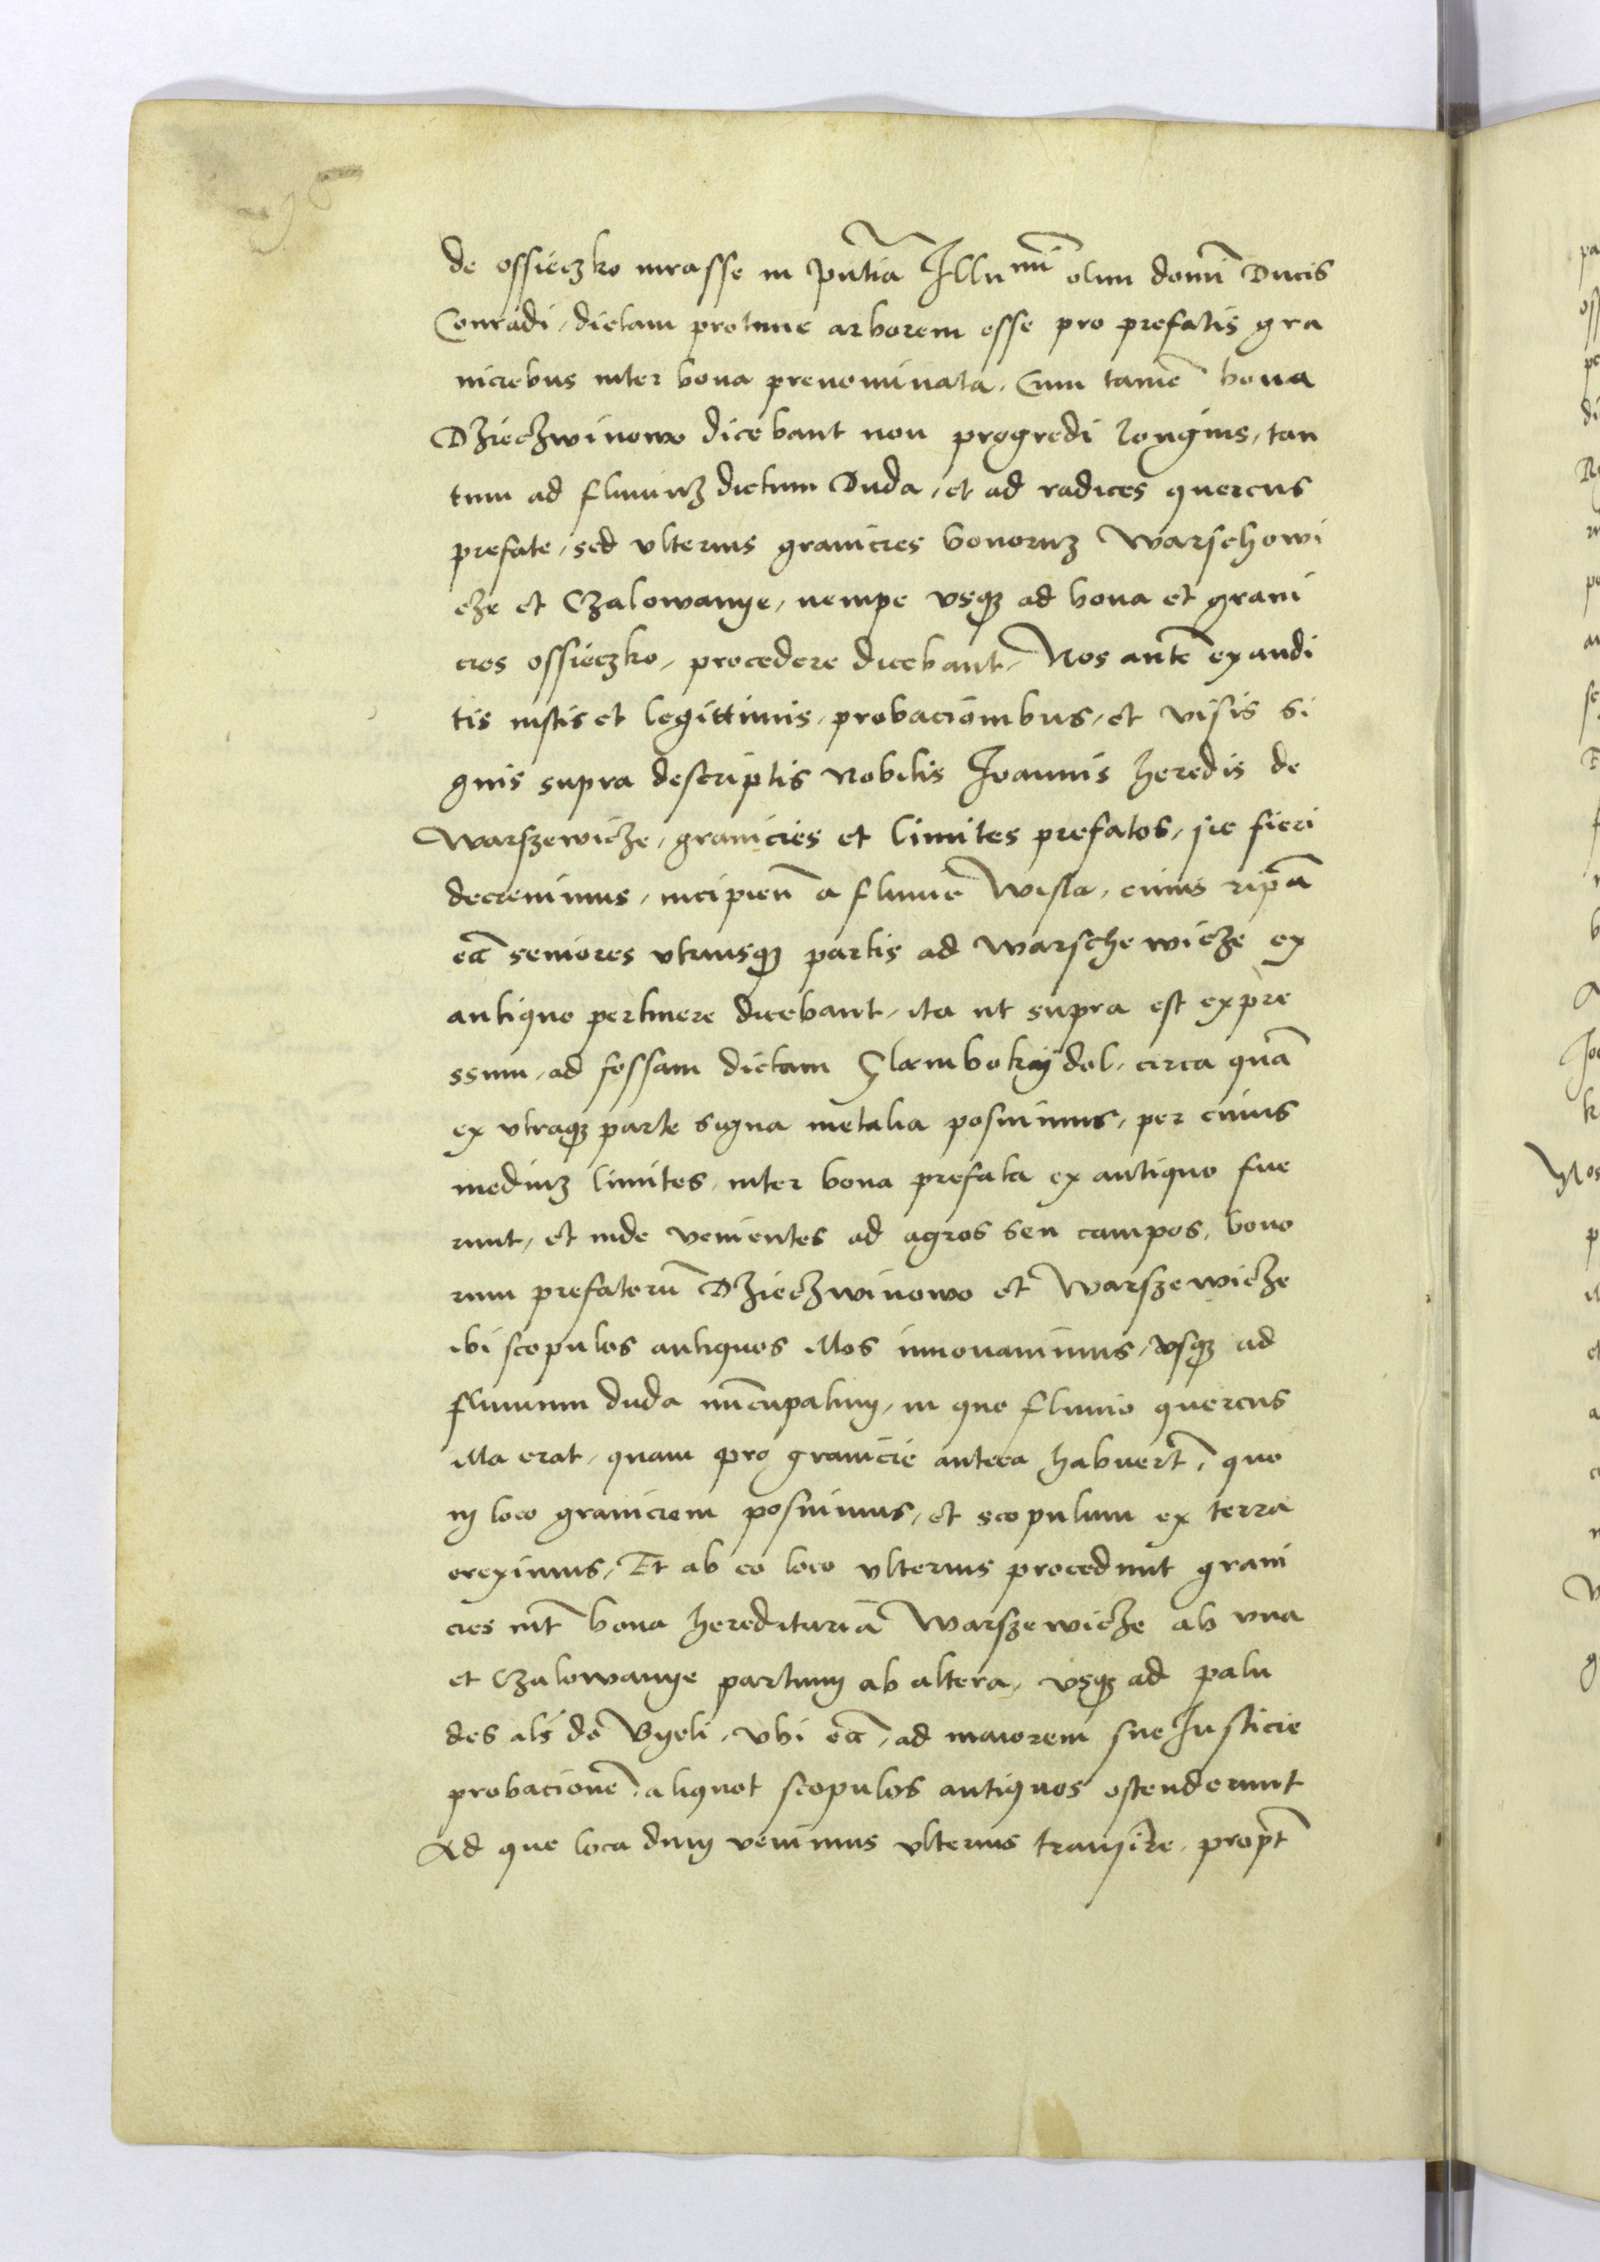 de ossieczko iurasse in pñtia Illu mi olim domĩ Ducis
Conradi, dictam protunc arborem esse pro prefatis gra
niciebus inter bona prenominata. Cum tamẽ bona
Dzieczwinowo dicebant non progredi longius, tan
tum ad fluuiuz dictum Duda, et ad radices quercus
prefate, sed vlterius granicies bonoruz Warschowi
cze et Czalowanye, nempe vsqz ad bona et grani
cies ossieczko, procedere dicebant, Nos autẽ exaudi
tis iustis et legittimis, probacionibus, et visis si
gnis supra descriptis Nobilis Joannis heredis de
Warszewicze, granicies et limites prefatos, sic fieri
decreuimus, incipieñ a fluuiẽ Wisla, cuius ripã
eã seniores vtriusqz partis ad Warschewicze ex
antiquo pertinere dicebant, ita ut supra est expre
ssum, ad fossam dictam Glæmbokydol, circa quã
ex vtraqz parte signa metalia posuimus, per cuius
mediuz limites, inter bona prefata ex antiquo fue
runt, et inde venientes ad agros seu campos, bono
rum prefatorũ Dzieczwinowo et Warszewicze
ibi scopulos antiquos illos innouauimus, vsqz ad
fluuium duda nũcupatum, in quo fluuio quercus
illa erat, quam pro granicie antea habuerũt, quo
in loco graniciem posuimus, et scopulum ex terra
ereximus, Et ab eo loco vlterius procedunt grani
cies int̃ bona hereditariã Warszewicze ab vna
et Czalowanye partium ab altera, vsqz ad palu
des alś do Byeli, vbi eã, ad maiorem sue Justicie
probacionẽ, aliquot scopulos antiquos ostenderunt
Ad que loca dum venimus vlterius transire, propt̃